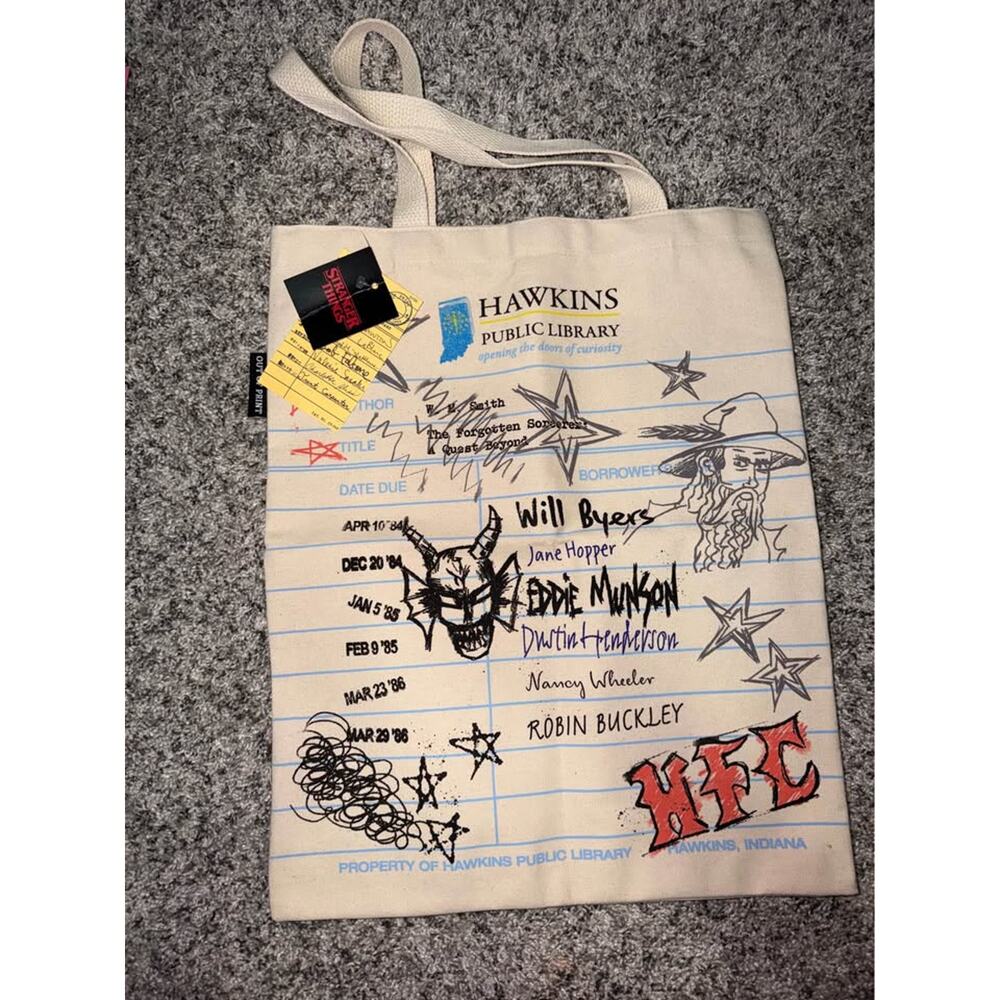 STRANGER
THINGS
OUT OF PRINT
HAWKINS
PUBLIC LIBRARY
opening the doors of curiosity
THOR W. M. Smith
TITLE The Forgotten Sorcerer:
A Quest Beyond
DATE DUE BORROWER
APR 10 '84 Will Byers
DEC 20 '84 Jane Hopper
JAN 5 '85 EDDIE MUNSON
FEB 9 '85 Dustin Henderson
MAR 23 '86 Nancy Wheeler
MAR 29 '86 ROBIN BUCKLEY
HFC
PROPERTY OF HAWKINS PUBLIC LIBRARY HAWKINS, INDIANA